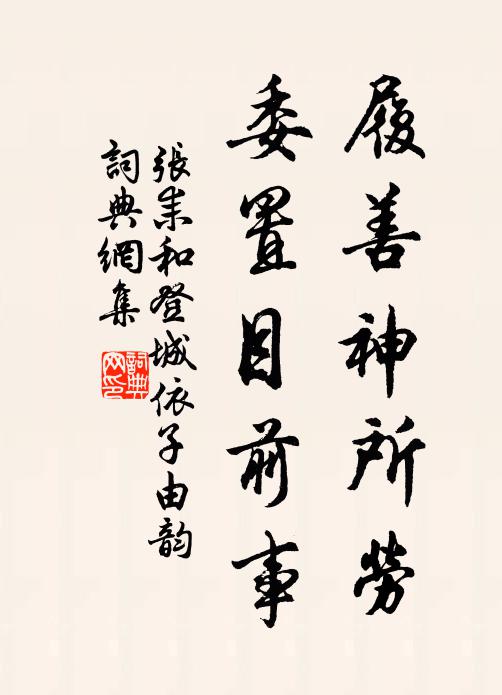 履善神所勞
委置目前事
張耒和登城依子由韵
詞典網集
詞典網印